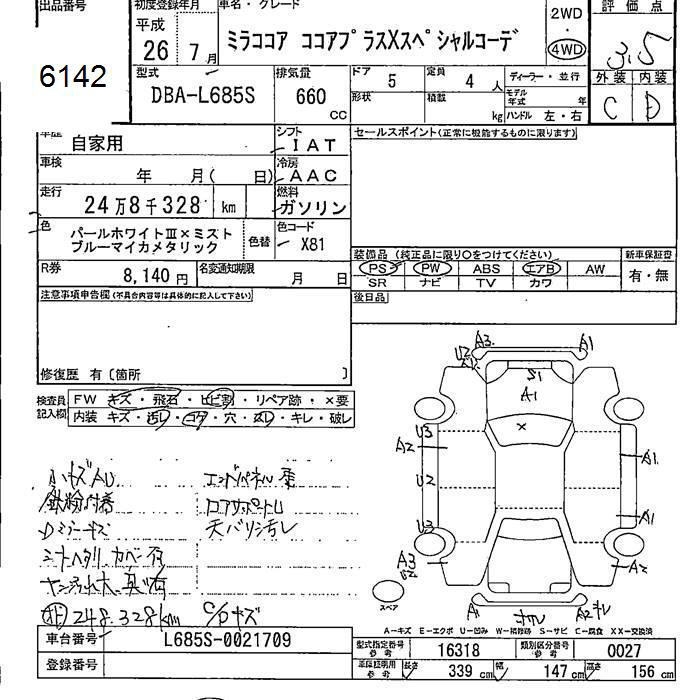 出品番号
6142
初度登録年月
平成
26年 7月
車名・グレード
ミラココア ココアプラスXスペシャルコーデ
2WD
・
4WD
評価点
3.5
外装 内装
C D
型式
DBA-L685S
排気量
660 CC
ドア
5
形状
定員
4 人
積載
kg
ディーラー・並行
モデル年式 年
ハンドル 左・右
車歴
自家用
シフト
IAT
車検
年 月( 日)
冷房
AAC
走行
24万8千328 km
燃料
ガソリン
色
パールホワイトⅢ×ミスト
ブルーマイカメタリック
色替
色コード
X81
R券
8,140 円
名変通知期限
月 日
セールスポイント(正常に機能するものに限ります)
装備品 (純正品に限り○をつけてください)
PS PW ABS エアB AW
SR ナビ TV カワ
新車保証書
有・無
後日品
注意事項申告欄(不具合内容等は具体的に記入して下さい)
修復歴 有 〔箇所 〕
検査員記入欄
FW キズ・飛石・ヒビ割・リペア跡・×要
内装 キズ・汚レ・コゲ・穴・スレ・キレ・破レ
小キズAU
鉄粉付着
Dミラーキズ
シートヘタリ
エンドパネル
ロアサポートU
天バリシミ汚レ
248.328km
C/Pキズ
U2 A3 A1
S1
A1
×
U3
A2
U2
U3
A3
U2
A1
A1
A2
A1
A2 キレ
スペア
A―キズ E―エクボ U―凹み W―補修跡 S―サビ C―腐食 XX―交換済
車台番号
L685S-0021709
登録番号
型式指定番号
参考
16318
類別区分番号
参考
0027
車庫証明用
参考
長さ
339 cm
幅
147 cm
高さ
156 cm